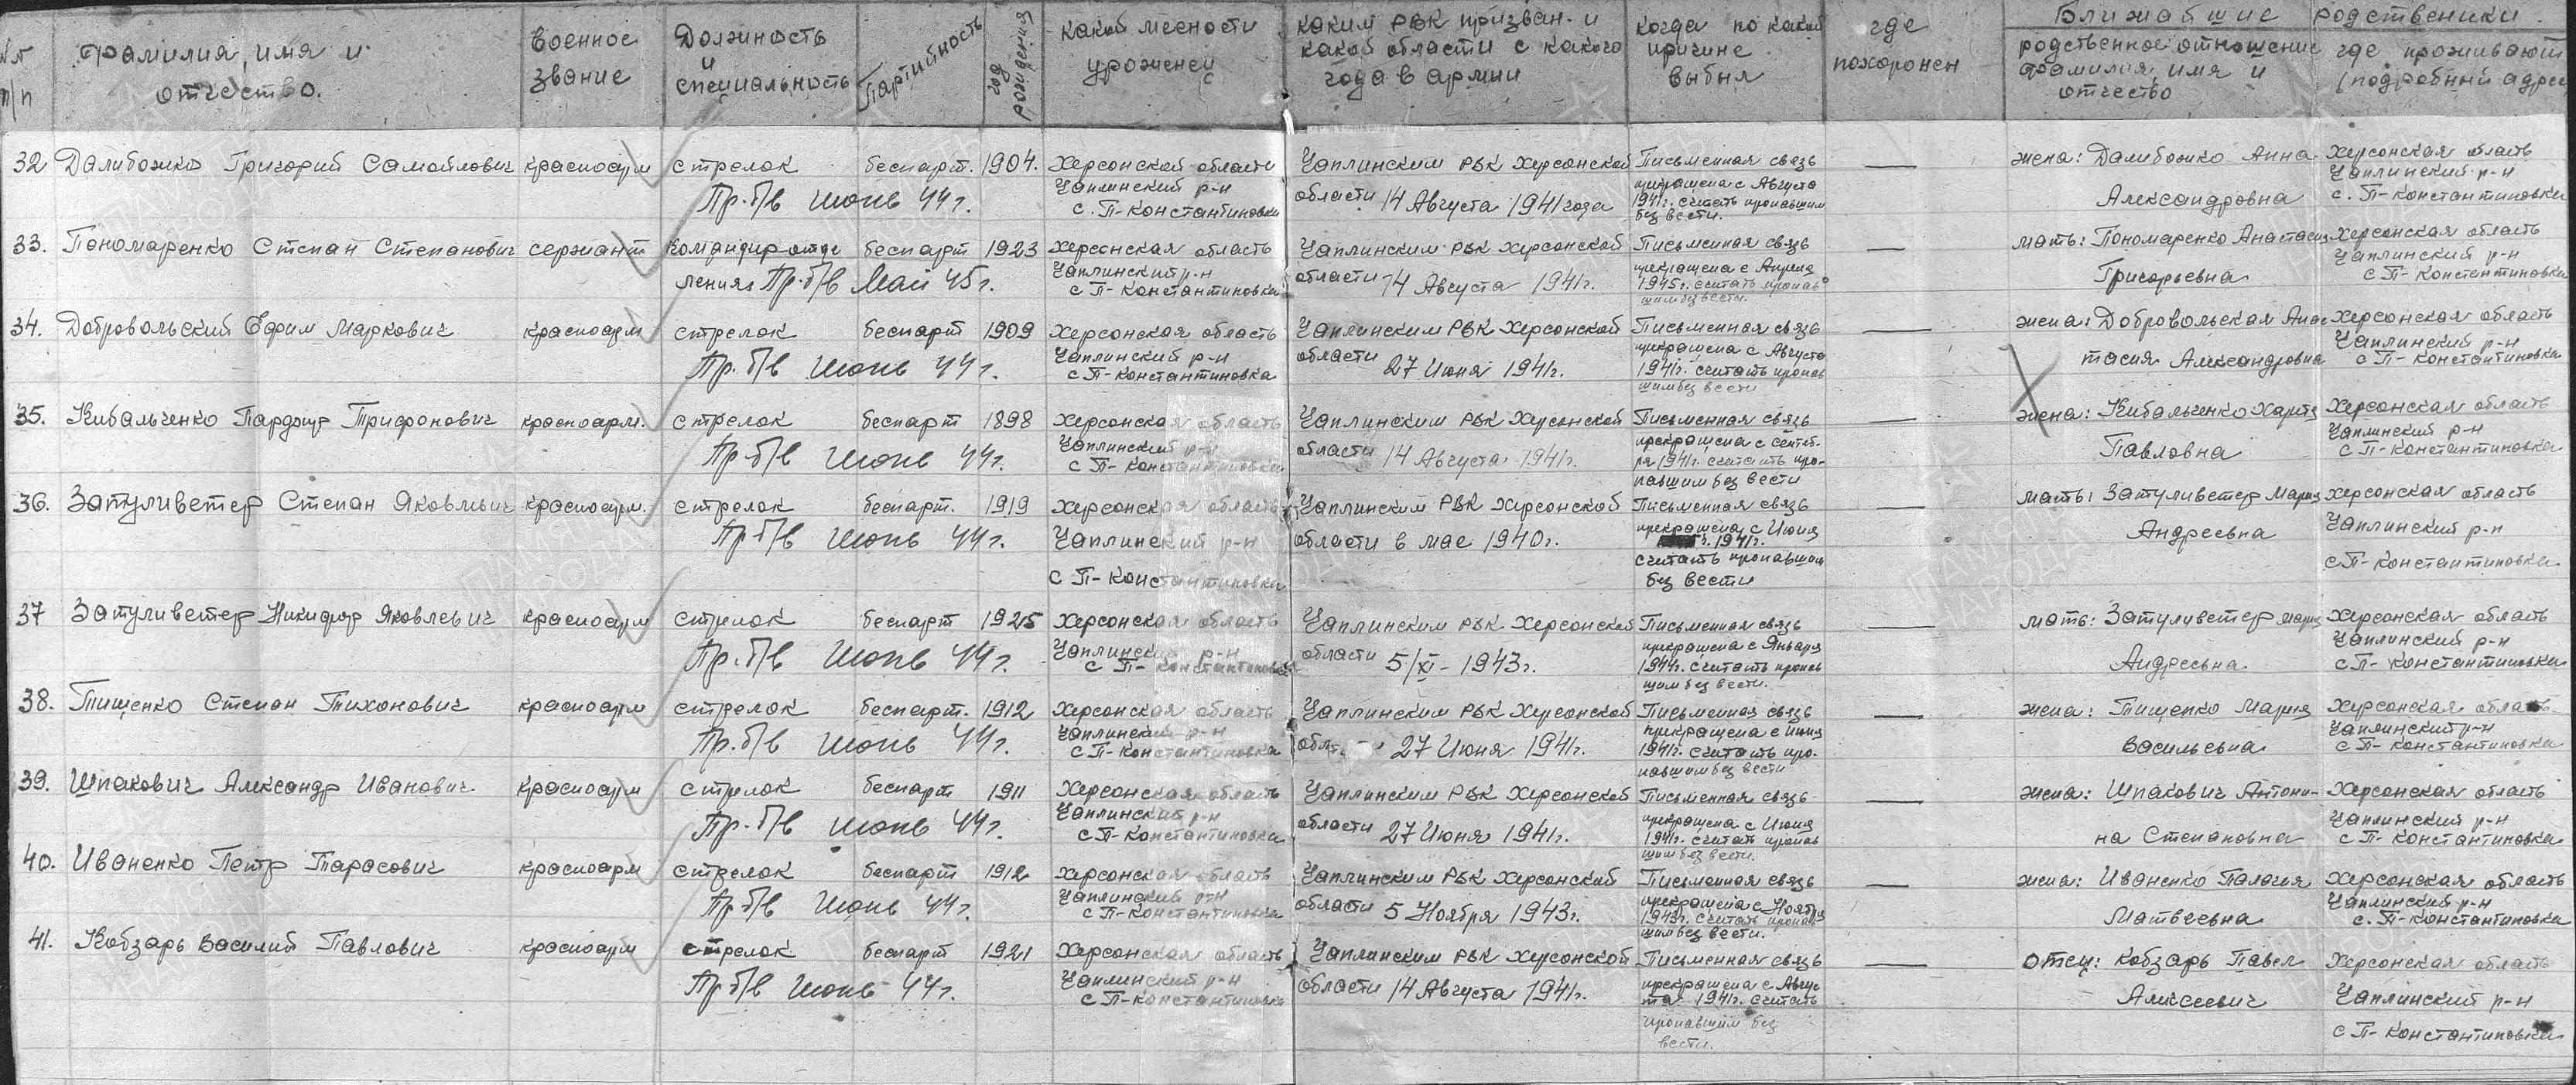 №№ п/п
Фамилия, имя и отчество.
Военное звание
Должность и специальность
Партийность
год рождения
какой месности уроженец
каким РВК призван и какой области с какого года в армии
когда по какой причине выбыл
где похоронен
Ближайшие родственики
родственное отношение фамилия, имя и отчество
где проживают (подробный адрес
32 Далибожко Григорий Самойлович красноарм стрелок беспарт. 1904. Херсонской области Чаплинским РВК Херсонской Письменная связь — жена: Далибожко Анна Херсонская область
Пр. б/в июнь 44 г. Чаплинский р-н с. П-Константиновка области 14 Августа 1941 года прекращена с Августа 1941г. считать пропавшим без вести. Александровна Чаплинский р-н с. П-Константиновка
33. Пономаренко Степан Степанович сержант командир отде беспарт 1923 Херсонская область Чаплинским РВК Херсонской Письменная связь — мать: Пономаренко Анастасия Херсонская область
ления Пр. б/в Май 45 г. Чаплинский р-н с П-Константиновка области 14 Августа 1941г. прекращена с Апреля 1945г. считать пропавшим без вести. Григорьевна Чаплинский р-н с П-Константиновка
34. Добровольский Ефим Маркович красноарм стрелок беспарт 1909 Херсонская область Чаплинским РВК Херсонской Письменная связь — жена: Добровольская Анас Херсонская область
Пр. б/в июнь 44 г. Чаплинский р-н с П-Константиновка области 27 Июня 1941г. прекращена с Августа 1941г. считать пропавшим без вести тасия Александровна Чаплинский р-н с П-Константиновка
35. Кибальченко Трифонович красноарм. стрелок беспарт 1898 Херсонская область Чаплинским РВК Херсонской Письменная связь — жена: Кибальченко Херсонская область
Пр. б/в июнь 44 г. Чаплинский р-н с П-Константиновка области 14 Августа 1941г. прекращена с сентября 1941г. считать пропавшим без вести Павловна Чаплинский р-н с П-Константиновка
36. Затуливетер Степан Яковлевич красноарм. стрелок беспарт. 1919 Херсонская область Чаплинским РВК Херсонской Письменная связь — мать: Затуливетер Мария Херсонская область
Пр. б/в июнь 44 г. Чаплинский р-н области в мае 1940г. прекращена с Июня 1941г. Андреевна Чаплинский р-н
с П-Константиновка считать пропавшим без вести с П-Константиновка
37 Затуливетер Никифор Яковлевич красноарм стрелок беспарт 1925 Херсонская область Чаплинским РВК Херсонской Письменная связь — мать: Затуливетер Мария Херсонская область
Пр. б/в июнь 44 г. Чаплинский р-н с П-Константиновка области 5/XI-1943г. прекращена с Января 1944г. считать пропавшим без вести. Андреевна Чаплинский р-н с П-Константиновка
38. Тищенко Степан Тихонович красноарм стрелок беспарт. 1912 Херсонская область Чаплинским РВК Херсонской Письменная связь — жена: Тищенко Мария Херсонская область
Пр. б/в июнь 44 г. Чаплинский р-н с П-Константиновка 27 Июня 1941г. прекращена с июня 1941г. считать пропавшим без вести Васильевна Чаплинский р-н с П-Константиновка
39. Шпакович Александр Иванович красноарм стрелок беспарт 1911 Херсонская область Чаплинским РВК Херсонской Письменная связь — жена: Шпакович Антони- Херсонская область
Пр. б/в июнь 44 г. Чаплинский р-н с П-Константиновка области 27 Июня 1941г. прекращена с Июня 1941г. считать пропавшим без вести. на Степановна Чаплинский р-н с П-Константиновка
40. Иваненко Петр Тарасович красноарм стрелок беспарт 1912 Херсонская область Чаплинским РВК Херсонской Письменная связь — жена: Иваненко Палагия Херсонская область
Пр. б/в июнь 44 г. Чаплинский р-н с П-Константиновка области 5 Ноября 1943г. прекращена с Ноября 1943г. считать пропавшим без вести. Матвеевна Чаплинский р-н с. П-Константиновка
41. Кобзарь Василий Павлович красноарм стрелок беспарт 1921 Херсонская область Чаплинским РВК Херсонской Письменная связь — отец: Кобзарь Павел Херсонская область
Пр б/в июнь 44 г. Чаплинский р-н с П-Константиновка области 14 Августа 1941г. прекращена с Августа 1941г. считать пропавшим без вести. Алексеевич Чаплинский р-н с П-Константиновка